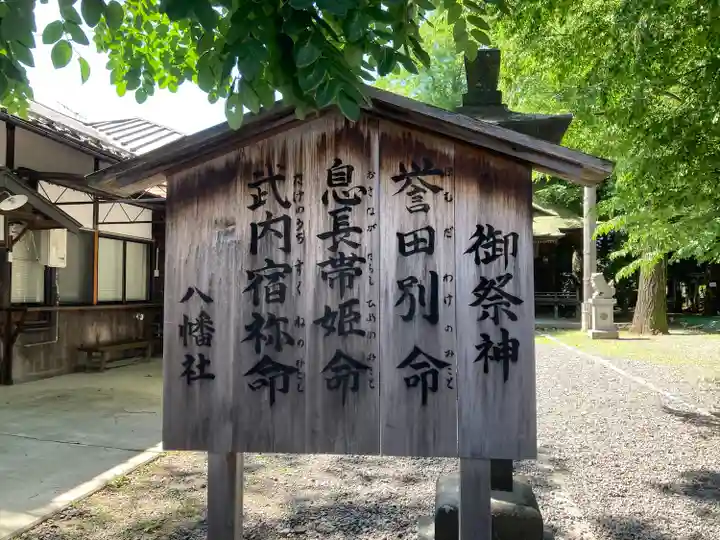 御祭神
誉田別命
ほむだわけのみこと
息長帯姫命
おきながたらしひめのみこと
武内宿祢命
たけのうちすくねのみこと
八幡社